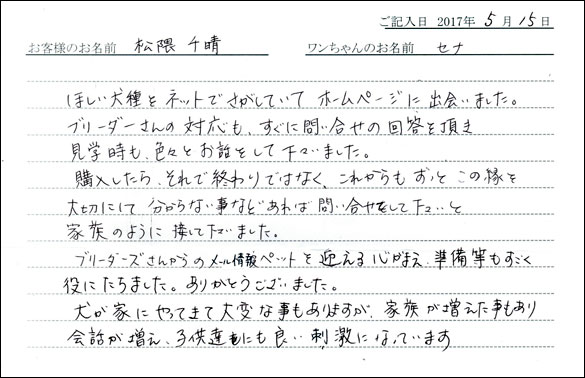 ご記入日 2017年 5月 15日
お客様のお名前 松隈 千晴 ワンちゃんのお名前 セナ
ほしい犬種をネットでさがしていて ホームページに出会いました。
ブリーダーさんの対応も、すぐに問い合せの回答を頂き
見学時も、色々とお話をして下さいました。
購入したら、それで終わりではなく、これからもずっとこの縁を
大切にして 分からない事などあれば問い合せをして下さいと
家族のように接して下さいました。
ブリーダーズさんからのメール情報ペットを迎える心がまえ、準備等もすごく
役にたちました。ありがとうございました。
犬が家にやってきて大変な事もありますが、家族が増えた事もあり
会話が増え、子供達にも良い刺激になっています